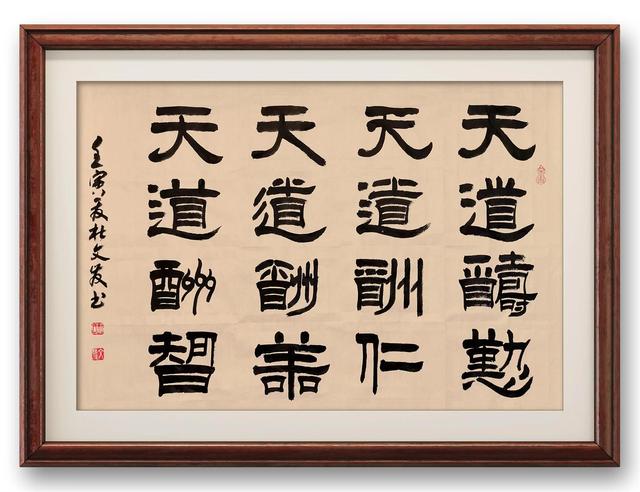 天道醻勤
天道酬仁
天道酬善
天道酬智
壬寅夏杜文发书